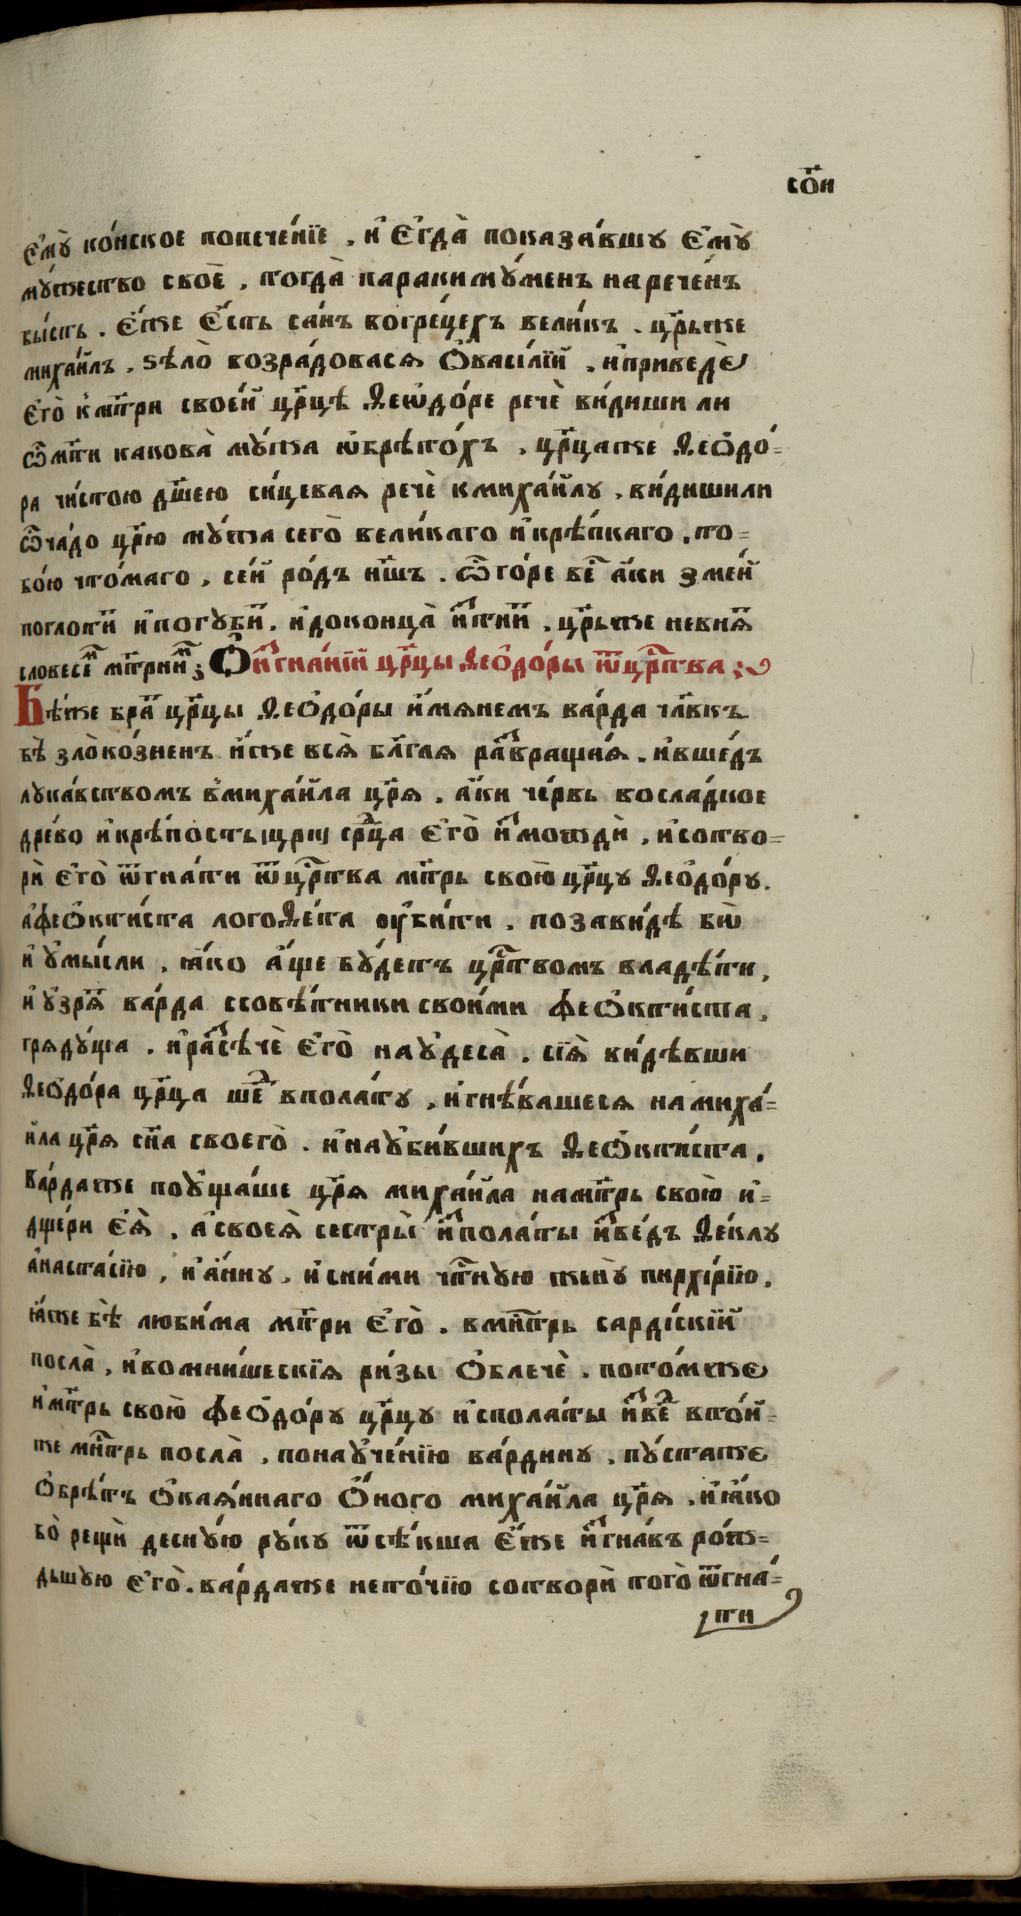 со҃и
є҆мꙋ̀ ко́нское попече́нїе . и҆ є҆гда̀ показа́вшꙋ є҆мꙋ̀
мꙋ́жество своѐ , тогда̀ паракимꙋ́менъ нарече́нъ
бы́сть . є҆́же є҆́сть са́нъ вогре́цехъ вели́къ . цр҃ьже
михаи́лъ , ѕѣлѡ̀ возра́довася ѡ҆васи́лїй , и҆приведѐ
є҆го̀ к̾мт҃ри свое́й цр҃цѣ ѳеѡдо́ре речѐ ви́диши ли
ѽмт҃и какова̀ мꙋ́жа ѡ҆брѣто́хъ , цр҃цаже ѳеѻдо́-
ра чи́стою дш҃ею си́цевая речѐ кмихаи́лꙋ , ви́дишили
ѽча́до цр҃ю мꙋ́жа сего̀ вели́каго и҆крѣ́пкаго , то-
бо́ю что́маго , се́й ро́дъ нш҃ъ . ѽго́ре бе҃ а҆́ки зме́й
поглоти҃ и҆погꙋби҃ . и҆доконца̀ и҆сти҃ , цр҃ьже невня҃
словесе҃ мт҃рни҃ ; Ѻ҆и҆згна́нїй цр҃цы ѳеѻдо́ры ѿцр҃тва ;
Бѣ́же бра҃ цр҃цы ѳеѻдо́ры и҆́мянемъ ва́рда чл҃вкъ
бѣ̀ злоко́зненъ и҆́же вся̀ бл҃гая развращая҃ , и҆вше́дъ
лꙋка́вствомъ в̾михаи́ла цр҃я , а҆́ки че́рвь восла́дкое
дре́во и҆крѣ́пость цр҃ю ср҃ца є҆го̀ и҆змождѝ , и҆сотво-
рѝ є҆го̀ ѿгна́ти ѿцр҃тва мт҃рь свою̀ цр҃цꙋ ѳеѻдо́рꙋ .
а҆феѻкти́ста логоѳе́та оу҆би́ти . позави́дѣ бѡ
и҆ ꙋ҆мы́сли , ꙗ҆́ко а҆́ще бꙋ́детъ цр҃твомъ владѣ́ти ,
и҆ ꙋ҆зря҃ ва́рда ссовѣ́тники свои́ми феѻкти́ста ,
грядꙋ́ща . и҆разсѣчѐ є҆го̀ наꙋ҆деса̀ , сїя̀ ви́дѣвши
ѳеѻдо́ра цр҃ца ше҃ вполатꙋ , и҆гнѣ́вашеся намиха́-
и́ла цр҃я сн҃а своего̀ . и҆наꙋ҆би́вшихъ ѳеѻкти́ста ,
ва́рдаже поꙋ҆ща́ше цр҃я михаи́ла намт҃рь свою̀ и҆-
дще́ри є҆ѧ̀ , а҆своея̀ сестры̀ и҆зпола́ты и҆зве́дъ ѳе́клꙋ
а҆наста́сїю , и҆ а҆́ннꙋ , и҆сни́ми чт҃нꙋю женꙋ̀ пирхирїю ,
ꙗ҆́же бѣ̀ люби́ма мт҃ри є҆го̀ . вмн҃трь сарді́скїй
посла̀ , и҆вомни́шескїя ри́зы ѻ҆блечѐ . пото́мже
и҆мт҃рь свою̀ феѻдо́рꙋ цр҃цꙋ и҆спола́ты и҆зве҃ вто́й-
же мн҃трь посла̀ , понаꙋ҆че́нїю ва́рдинꙋ , пꙋ́стаже
ѻ҆брѣ́тъ ѻ҆кая́ннаго ѻ҆́ного михаи́ла цр҃я . и҆ꙗ҆́ко
бо̀ рещѝ деснꙋ́ю рꙋ́кꙋ ѿсѣ́кша є҆́же и҆згна́въ ро́ж-
дьшꙋю є҆го̀ . ва́рдаже нето́чїю сотворѝ того̀ ѿгна́-
ти